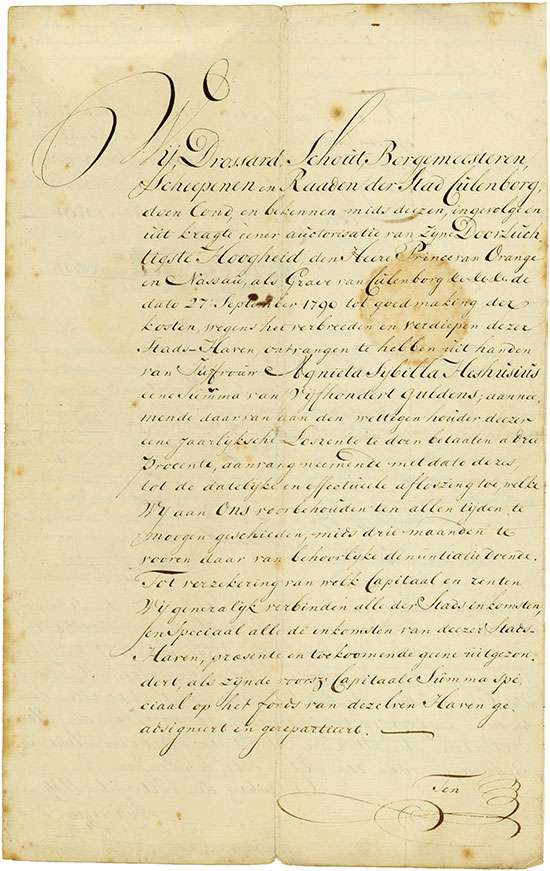 Wij Drossard, Schout, Borgemeesteren,
Scheepenen en Raaden der Stad Cúlenborg,
doen Cond, en bekennen mids deezen, ingevolge en
uit kragte eener auctorisatie van Zijne Doorluch
tigste Hoogheid den Heere Prince van Orange
en Nassau, als Grave van Cúlenborg &c &c &c de
dato 27 September 1790 tot goedmaking der
kosten, wegens het verbreeden en verdiepen dezer
Stads-Haven ontvangen te hebben uit handen
van Juffrouw Agnieta Sybilla Heshusius
eene Summa van Vijfhondert guldens; aannee
mende daar van aan den wettigen houder deezer
eene jaarlijksche Losrente te doen betaalen a drie
Procento, aanvang neemende met dato dezes,
tot de datelijke en effectueele aflossing toe, welke
Wy aan Ons voorbehouden ten allen tijden te
moogen geschieden, mids drie maanden te
vooren daar van behoorlijke denuntiatie doende.
Tot verzekering van welk Capitaal en renten
Wij generalijk verbinden alle der Stads inkomsten,
en Speciaal alle de inkomsten van deezer Stads-
Haven, præsente en toekoomende geene uitgezon-
dert, als zijnde voorsz. Capitaale Summa spe
ciaal op het fonds van dezelven Haven ge
adsigneert en gerepartieert.
Ten